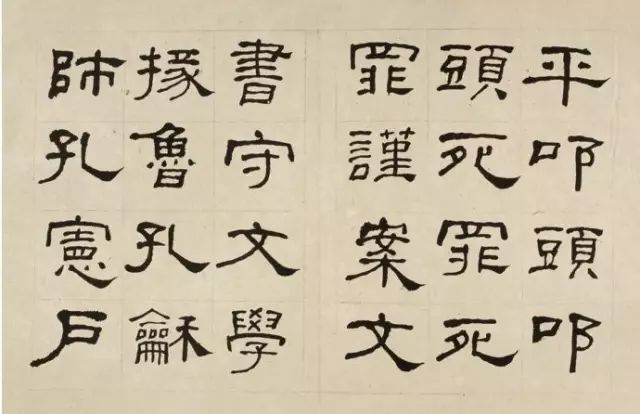 平叩頭叩
頭死罪死
罪謹案文
書守文學
掾魯孔龢
師孔憲戶